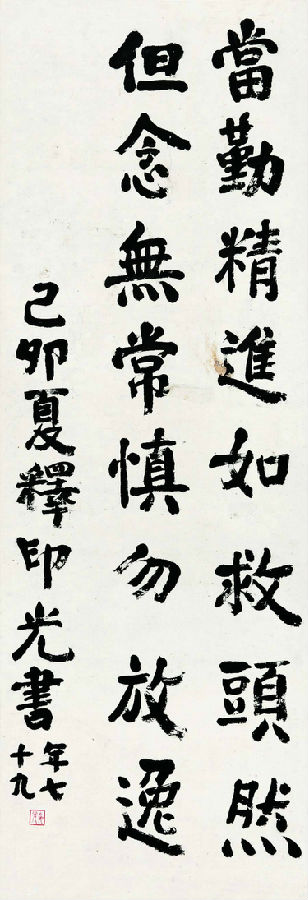 當勤精進如救頭然
但念無常慎勿放逸
己卯夏釋印光書
年七十九